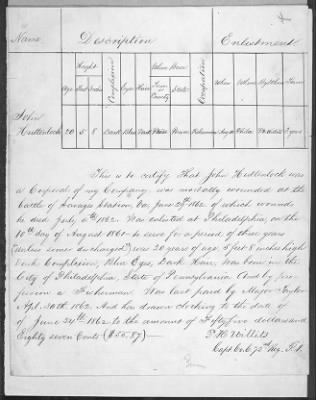 Name Description Enlistment
Height Where Born
Age Feet Inches Complexion Eyes Hair Town or County State Occupation When Where By Whom Term
John
Huttenlock 20 5 8 Dark Blue Dark Phila Penn Fisherman Aug 10 Phila 3 years
This is to certify That John Huttenlock was
a Corporal of my Company, was mortally wounded at the
battle of Savages Station, Va, June 29th 1862 of which wound
he died July 6th 1862. Was enlisted at Philadelphia, on the
10th day of August 1861 to serve for a period of three years
(unless sooner discharged) was 20 years of age, 5 feet 8 inches high
Dark Complexion, Blue Eyes, Dark Hair, Was born in the
City of Philadelphia, State of Pennsylvania And by pro-
fession a Fisherman. Was last paid by Major Taylor
Apl. 30th 1862. And has drawn clothing to the date of
of June 24th 1862 to the amount of Fifty five dollars and
Eighty seven Cents ($55.87)
P. H. Willets
Capt Co. C 72nd Reg. P.V.